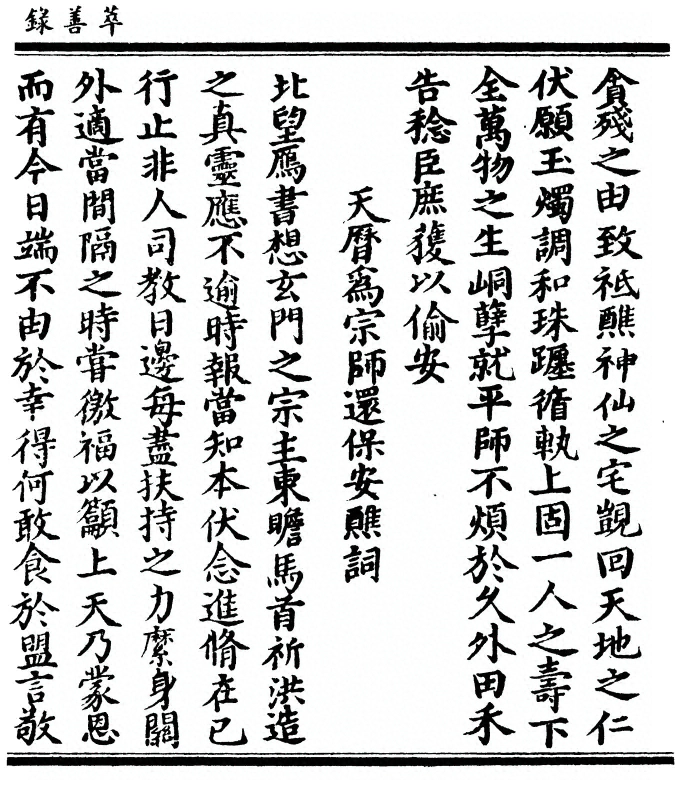 萃善錄
貪殘之由致祗醮神仙之宅覬回天地之仁
伏願玉燭調和珠躔循軌上固一人之壽下
全萬物之生峒孽就平師不煩於久外田禾
告稔臣庶獲以偷安
天曆爲宗師還保安醮詞
北望鴈書想玄門之宗主東瞻馬首祈洪造
之真靈應不逾時報當知本伏念進脩在己
行止非人司教日邊每蓋扶持之力縻身關
外適當間隔之時嘗徼福以籲上天乃蒙恩
而有今日端不由於幸得何敢食於盟言敬